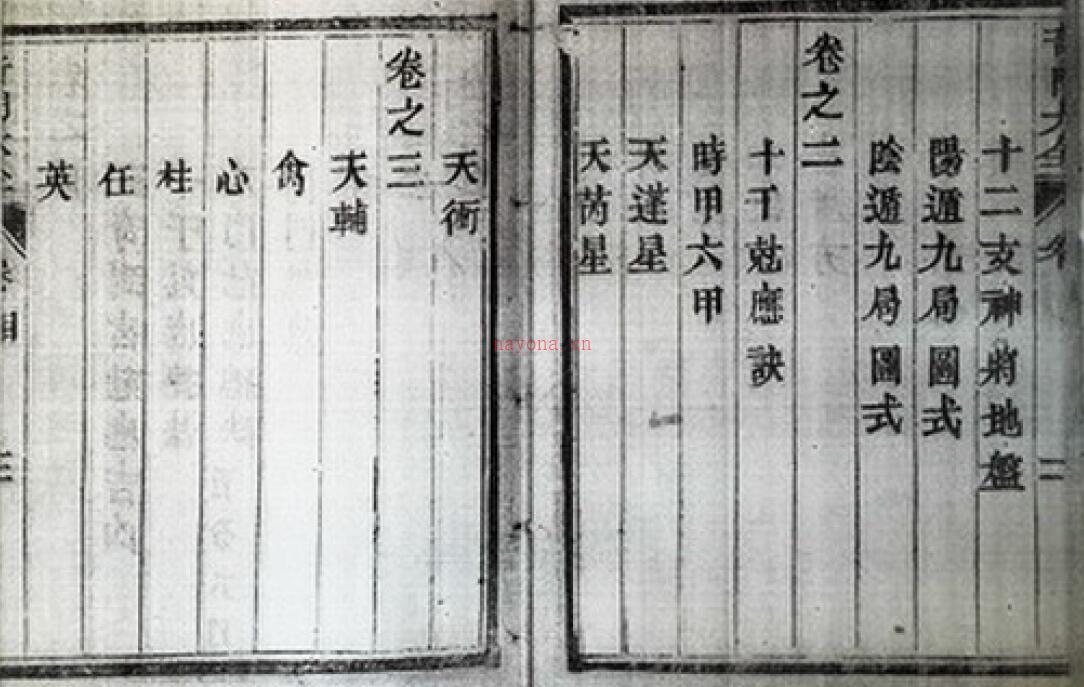 十二支神將地盤
陽遁九局圖式
陰遁九局圖式
卷之二
十干尅應訣
時甲六甲
天蓬星
天芮星
天衝
卷之三
天輔
禽
心
柱
任
英
nayona.vn